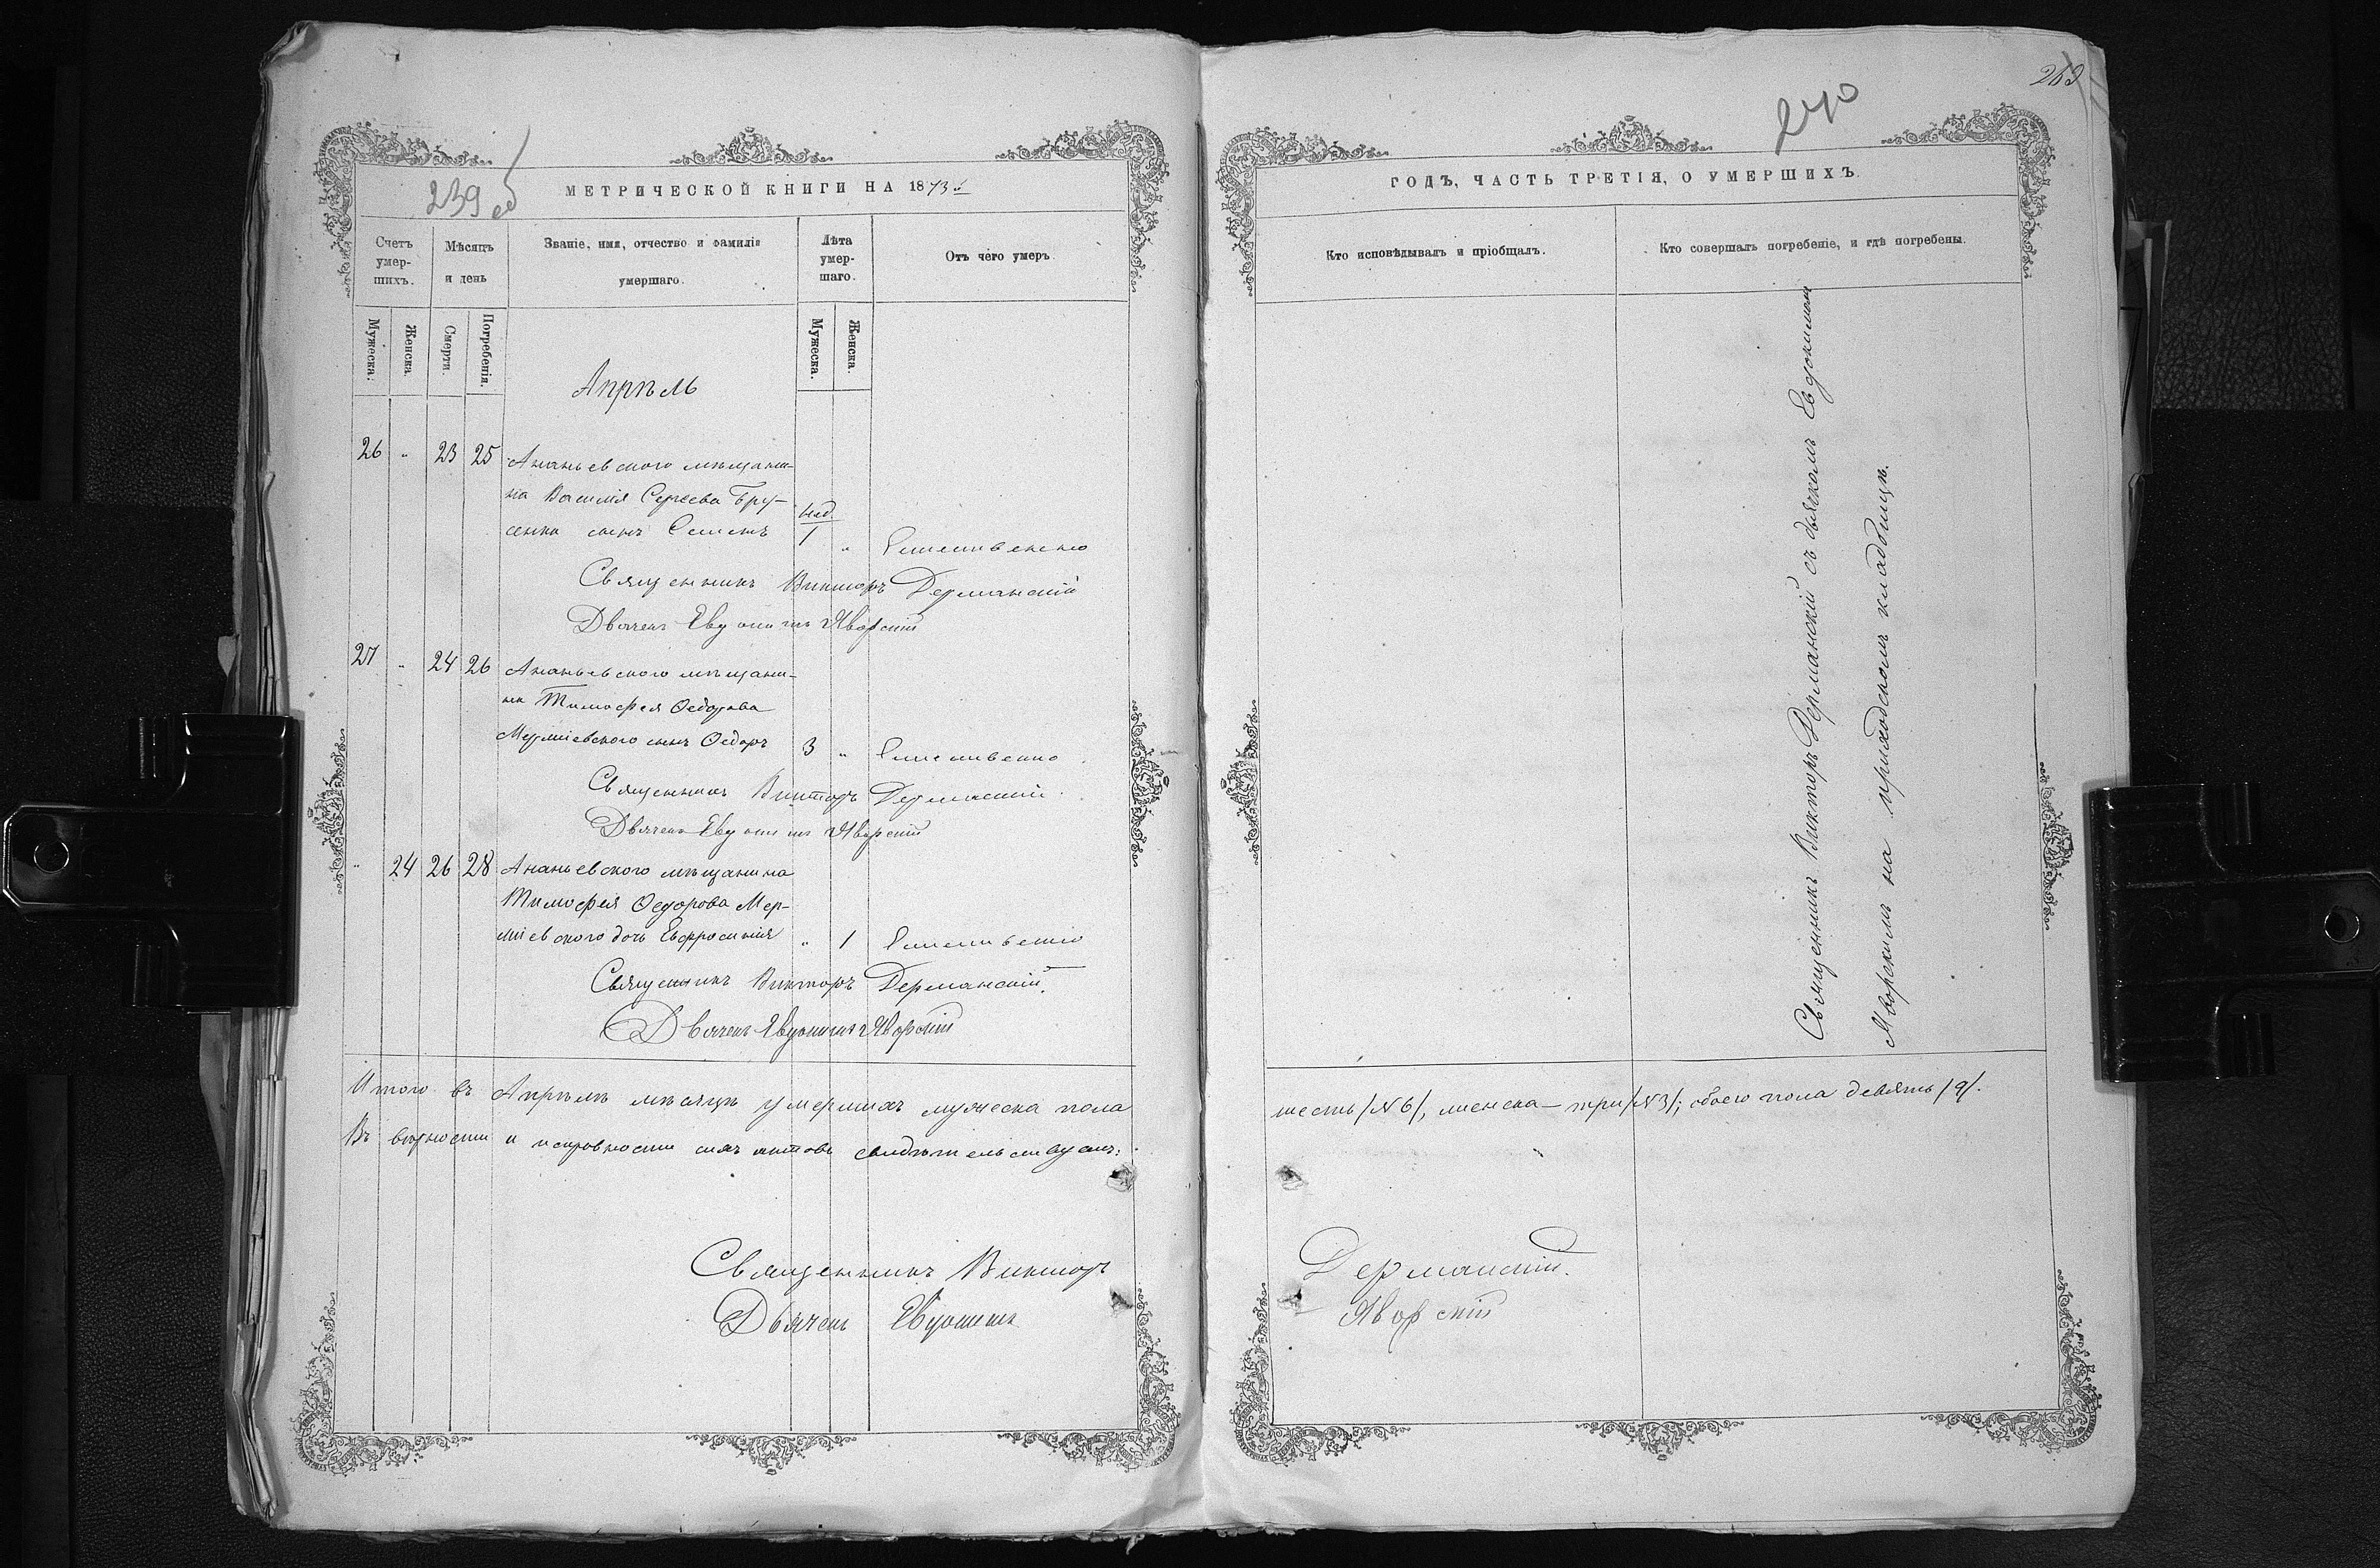 239 об
МЕТРИЧЕСКОЙ КНИГИ НА 1873й
Счетъ умер-шихъ.
Мѣсяцъ и день
Званіе, имя, отчество и фамилія умершаго.
Лѣта умер-шаго.
Отъ чего умеръ
Мужеска.
Женска.
Смерти.
Погребенія.
Мужеска.
Женска.
Апрѣль
26 " 23 25 Ананьевского мѣщани-
на Василія Сергѣева Бру-
сенка сынъ Семенъ нед. 1 " Естественно
Священникъ Викторъ Дерманскій
Дьячекъ Евдокимъ Яворскій
27 " 24 26 Ананьевского мѣщани-
на Тимофея Ѳедорова
сынъ Ѳедоръ 3 " Естественно
Священникъ Викторъ Дерманскій
Дьячекъ Евдокимъ Яворскій
" 24 26 28 Ананьевского мѣщанина
Тимофея Ѳедорова Мер-
міевского дочь Евфросинія " 1 Естественно
Священникъ Викторъ Дерманскій
Дьячекъ Евдокимъ Яворскій
Итого въ Апрѣлѣ мѣсяцѣ умершихъ мужеска пола
Въ вѣрности и исправности сихъ актовъ свидѣтельствуемъ:
Священникъ Викторъ
Дьячекъ Евдокимъ
240
ГОДЪ, ЧАСТЬ ТРЕТІЯ, О УМЕРШИХЪ.
Кто исповѣдывалъ и пріобщалъ.
Кто совершалъ погребеніе, и гдѣ погребены.
Священникъ Викторъ Дерманскій съ дьячкомъ Евдокимомъ
Яворскимъ на приходскомъ кладбищѣ.
шесть /№6/, женска – три /№3/; обоего пола девять /9/.
Дерманскій.
Яворскій